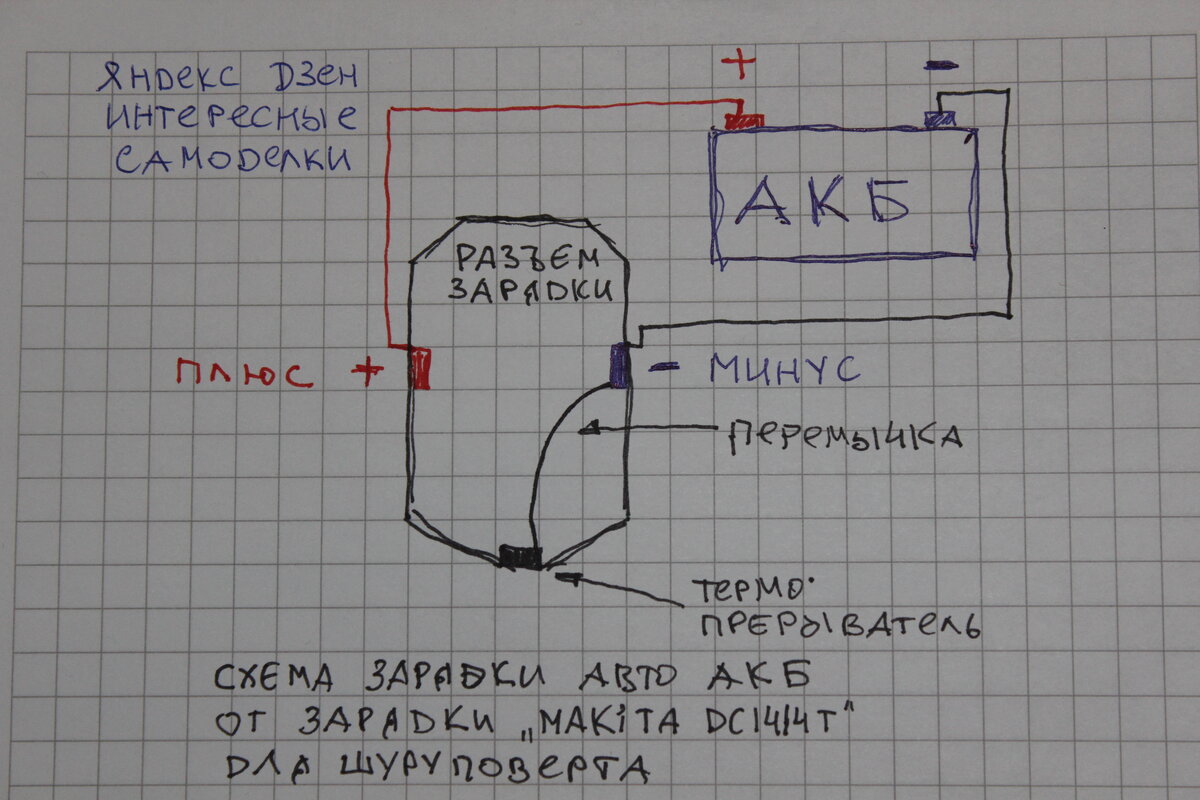 ЯНДЕКС ДЗЕН
ИНТЕРЕСНЫЕ
САМОДЕЛКИ
+ -
АКБ
РАЗЪЕМ
ЗАРЯДКИ
ПЛЮС + - МИНУС
ПЕРЕМЫЧКА
ТЕРМО
ПРЕРЫВАТЕЛЬ
СХЕМА ЗАРЯДКИ АВТО АКБ
ОТ ЗАРЯДКИ „MAKITA DC1414T"
ДЛЯ ШУРУПОВЕРТА